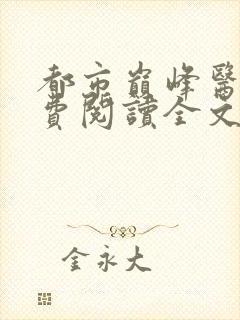 都市巔峰醫
費閱讀全文
金永大